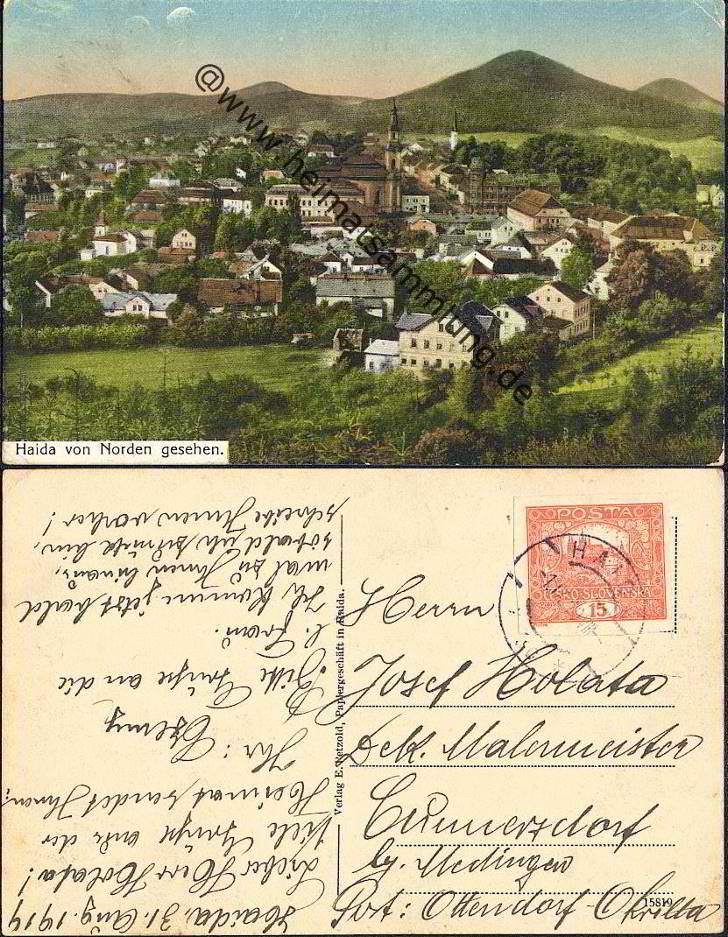 @www.heimatsammlung.de
Haida von Norden gesehen.
Haida, 31. Aug. 1919
Lieber Herr Holata!
Viele Grüße aus der
Heimat sendet Ihnen
Ihr:
Bitte Grüße an die
l. Frau.
Ich komme jetzt bald
mal zu Ihnen hinaus,
sobald ich zurück bin,
schreibe Ihnen vorher!
Verlag E. Petzold, Papiergeschäft in Haida.
POSTA
ČESKO-SLOVENSKÁ
15
HAI
Herrn
Josef Holata
Dek. Malermeister
Cunnersdorf
by. Medingen
Pst: Ottendorf-Okrilla
15819